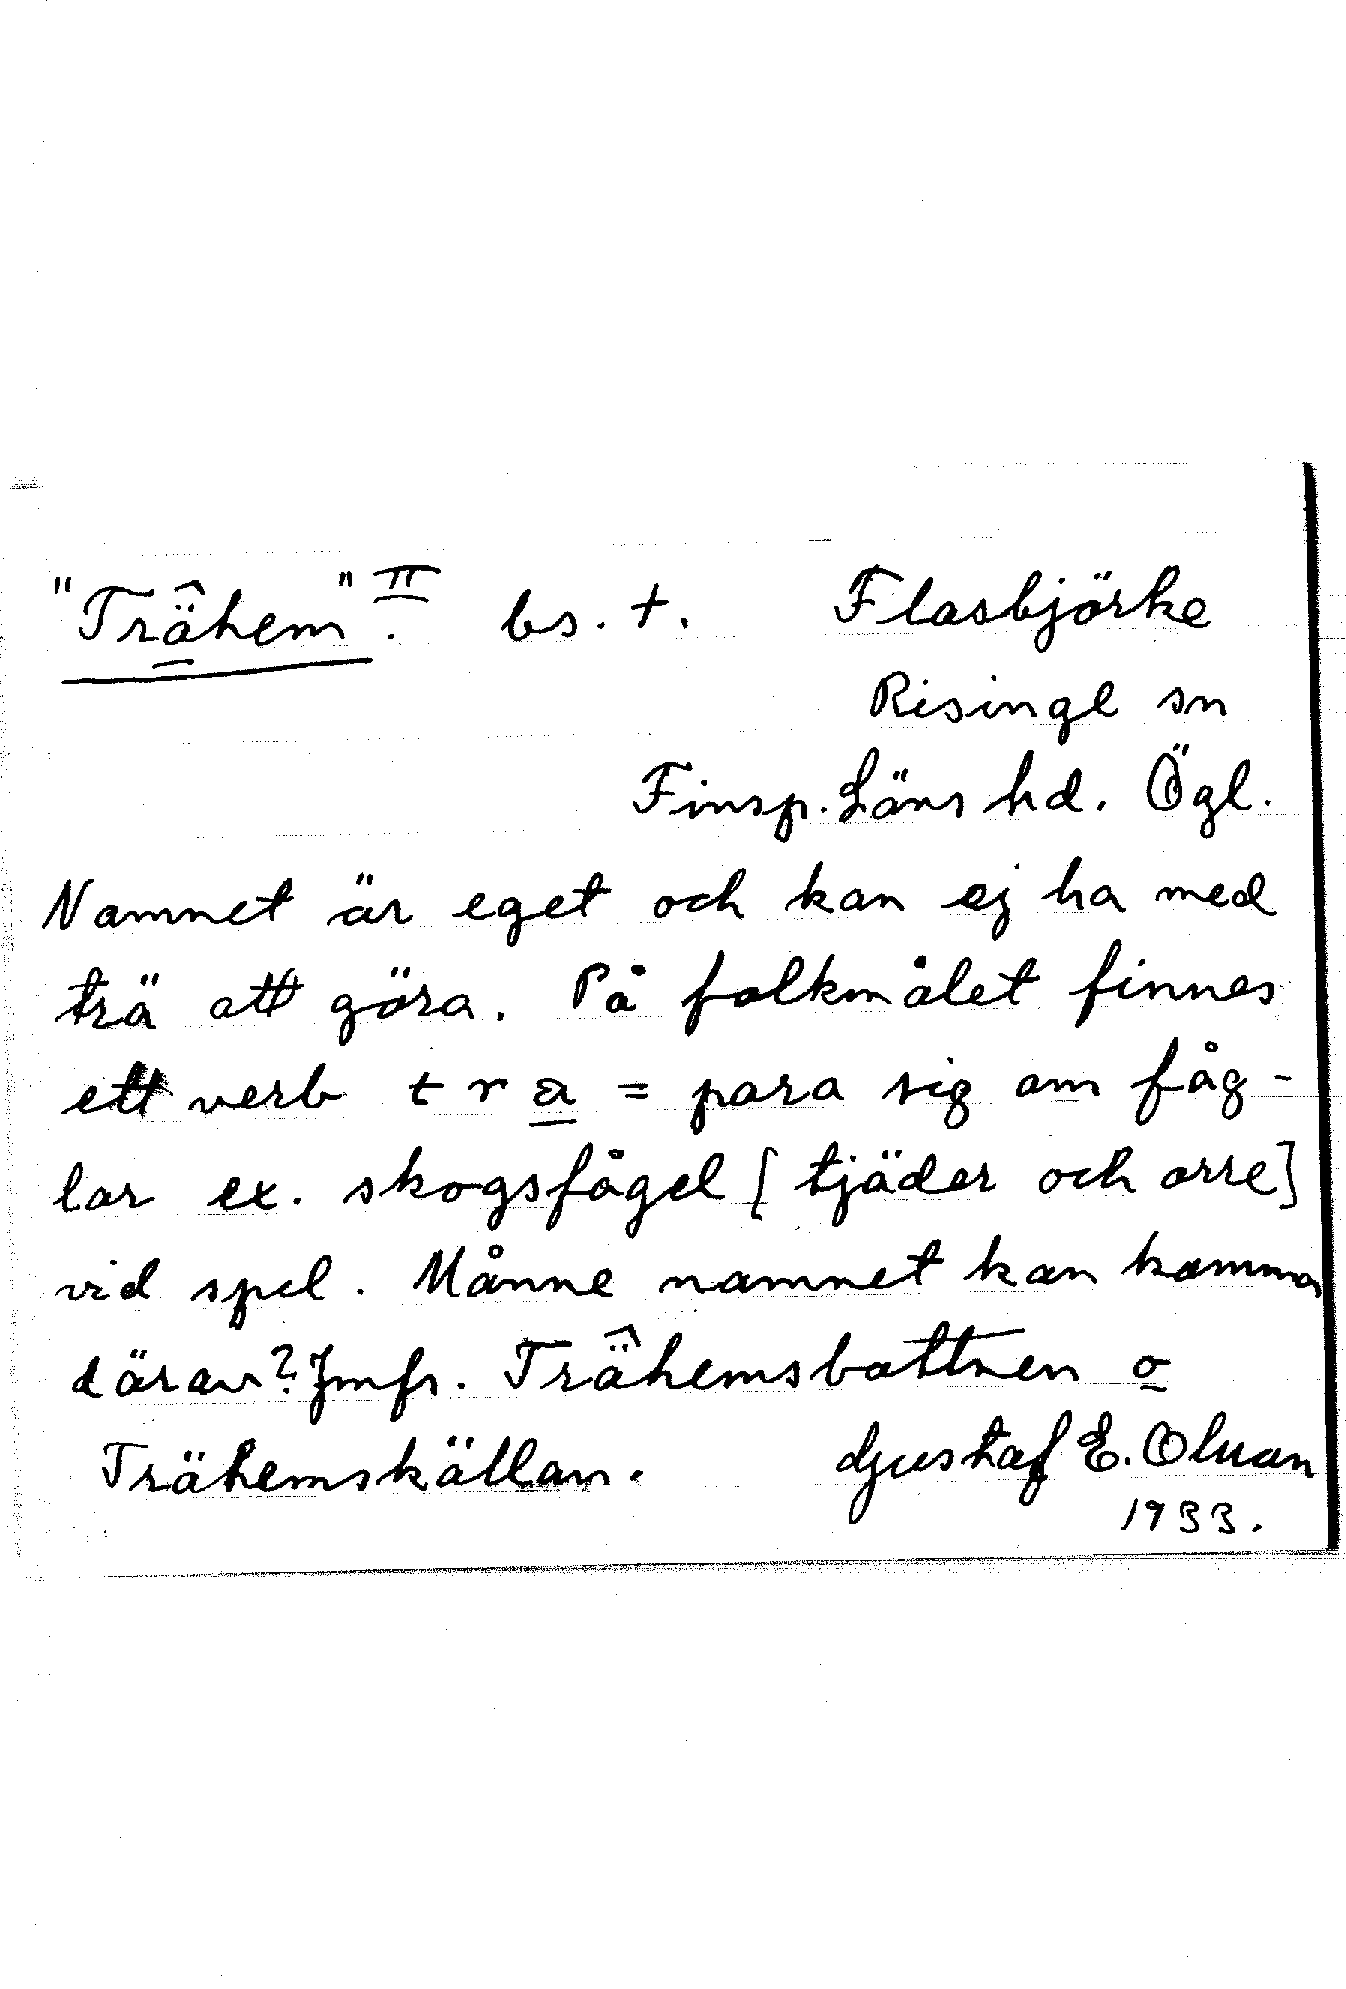 "Trähem" II. bs. †. Flasbjörke
Risinge sn
Finsp. Läns hd. Ögl.
Namnet är eget och kan ej ha med
trä att göra. På folkmålet finnes
ett verb t r a = para sig om fåg-
lar ex. skogsfågel [tjäder och orre]
vid spel. Månne namnet kan komma
därav? Jmfr. Trähemsbottnen o
Trähemskällan. Gustaf E. Olson
1933.